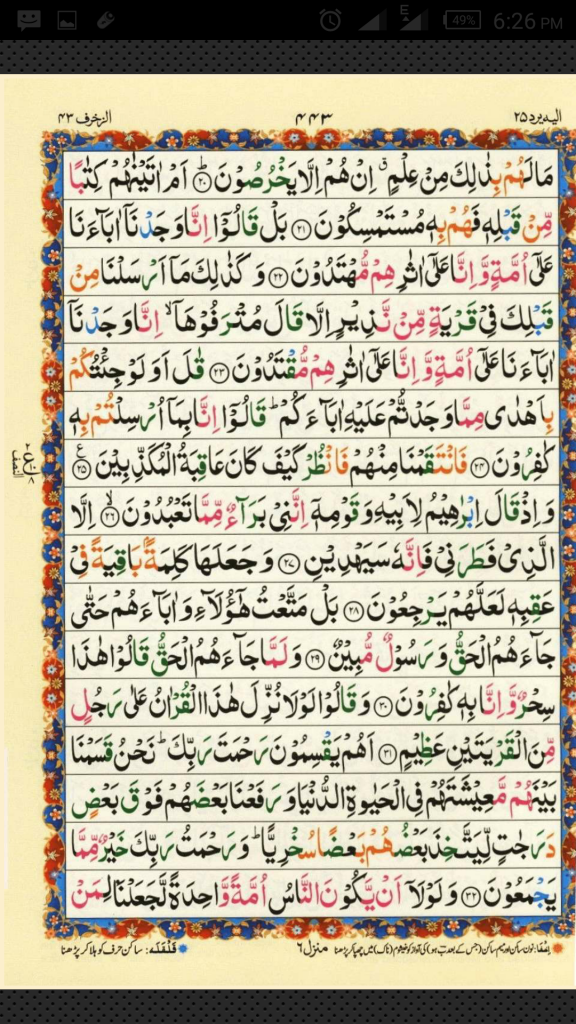 49% 6:26 PM
الیه یرد ۲۵ ۴۴۳ الزخرف ۴۳
مَا لَهُمْ بِذٰلِكَ مِنْ عِلْمٍ ۗ اِنْ هُمْ اِلَّا یَخْرُصُوْنَ ؕ﴿۲۰﴾ اَمْ اٰتَیْنٰهُمْ كِتٰبًا
مِّنْ قَبْلِهٖ فَهُمْ بِهٖ مُسْتَمْسِكُوْنَ ﴿۲۱﴾ بَلْ قَالُوْۤا اِنَّا وَجَدْنَاۤ اٰبَآءَنَا
عَلٰۤی اُمَّةٍ وَّ اِنَّا عَلٰۤی اٰثٰرِهِمْ مُّهْتَدُوْنَ ﴿۲۲﴾ وَ كَذٰلِكَ مَاۤ اَرْسَلْنَا مِنْ
قَبْلِكَ فِیْ قَرْیَةٍ مِّنْ نَّذِیْرٍ اِلَّا قَالَ مُتْرَفُوْهَاۤ ۙ اِنَّا وَجَدْنَاۤ
اٰبَآءَنَا عَلٰۤی اُمَّةٍ وَّ اِنَّا عَلٰۤی اٰثٰرِهِمْ مُّقْتَدُوْنَ ﴿۲۳﴾ قٰلَ اَوَ لَوْ جِئْتُكُمْ
بِاَهْدٰی مِمَّا وَجَدْتُّمْ عَلَیْهِ اٰبَآءَكُمْ ؕ قَالُوْۤا اِنَّا بِمَاۤ اُرْسِلْتُمْ بِهٖ
كٰفِرُوْنَ ﴿۲۴﴾ فَانْتَقَمْنَا مِنْهُمْ فَانْظُرْ كَیْفَ كَانَ عَاقِبَةُ الْمُكَذِّبِیْنَ ﴿۲۵﴾ ع
وَ اِذْ قَالَ اِبْرٰهِیْمُ لِاَبِیْهِ وَ قَوْمِهٖۤ اِنَّنِیْ بَرَآءٌ مِّمَّا تَعْبُدُوْنَ ﴿۲۶﴾ۙ اِلَّا
الَّذِیْ فَطَرَنِیْ فَاِنَّهٗ سَیَهْدِیْنِ ﴿۲۷﴾ وَ جَعَلَهَا كَلِمَةًۢ بَاقِیَةً فِیْ
عَقِبِهٖ لَعَلَّهُمْ یَرْجِعُوْنَ ﴿۲۸﴾ بَلْ مَتَّعْتُ هٰۤؤُلَآءِ وَ اٰبَآءَهُمْ حَتّٰی
جَآءَهُمُ الْحَقُّ وَ رَسُوْلٌ مُّبِیْنٌ ﴿۲۹﴾ وَ لَمَّا جَآءَهُمُ الْحَقُّ قَالُوْا هٰذَا
سِحْرٌ وَّ اِنَّا بِهٖ كٰفِرُوْنَ ﴿۳۰﴾ وَ قَالُوْا لَوْ لَا نُزِّلَ هٰذَا الْقُرْاٰنُ عَلٰی رَجُلٍ
مِّنَ الْقَرْیَتَیْنِ عَظِیْمٍ ﴿۳۱﴾ اَهُمْ یَقْسِمُوْنَ رَحْمَتَ رَبِّكَ ؕ نَحْنُ قَسَمْنَا
بَیْنَهُمْ مَّعِیْشَتَهُمْ فِی الْحَیٰوةِ الدُّنْیَا وَ رَفَعْنَا بَعْضَهُمْ فَوْقَ بَعْضٍ
دَرَجٰتٍ لِّیَتَّخِذَ بَعْضُهُمْ بَعْضًا سُخْرِیًّا ؕ وَ رَحْمَتُ رَبِّكَ خَیْرٌ مِّمَّا
یَجْمَعُوْنَ ﴿۳۲﴾ وَ لَوْ لَاۤ اَنْ یَّكُوْنَ النَّاسُ اُمَّةً وَّاحِدَةً لَّجَعَلْنَا لِمَنْ
النصف
منزل ۶
قَلْقَلَه: ساکن حرف کو ہلا کر پڑھنا